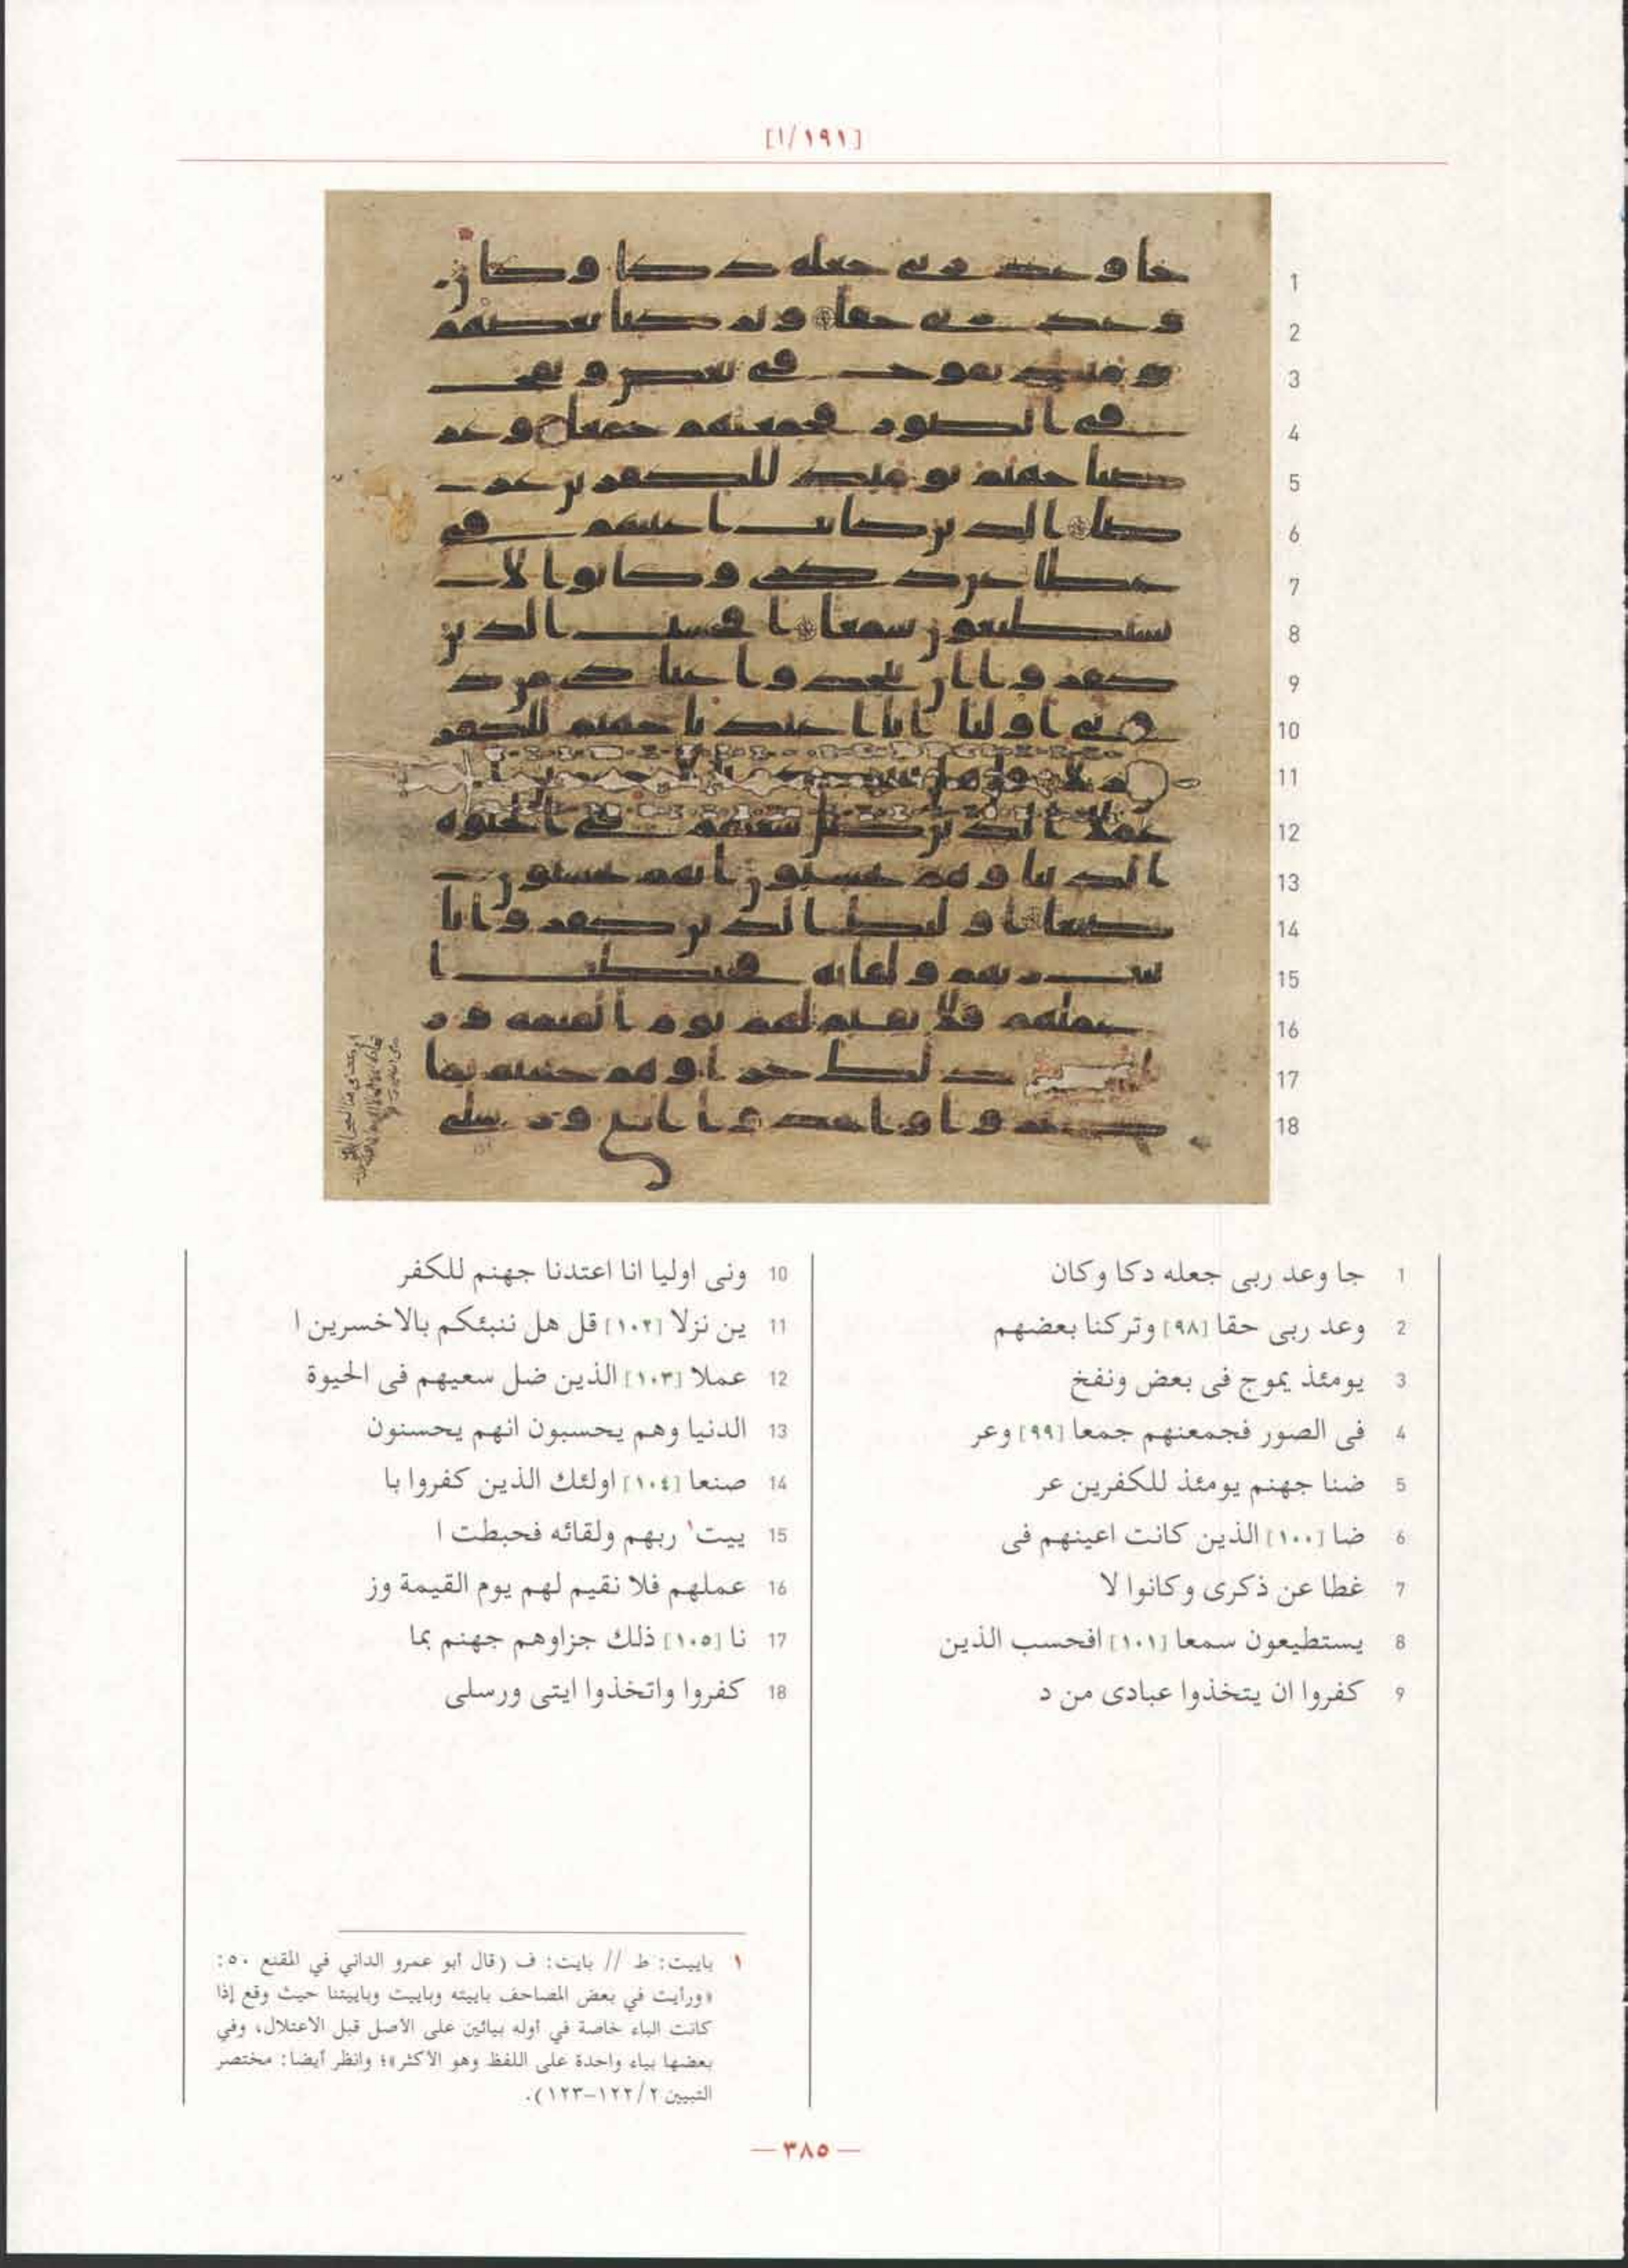 [١٩١/ا]
1 جا وعد ربى جعله دكا وكان
2 وعد ربى حقا [٩٨] وتركنا بعضهم
3 يومئذ يموج فى بعض ونفخ
4 فى الصور فجمعنهم جمعا [٩٩] وعر
5 ضنا جهنم يومئذ للكفرين عر
6 ضا [١٠٠] الذين كانت اعينهم فى
7 غطا عن ذكرى وكانوا لا
8 يستطيعون سمعا [١٠١] افحسب الذين
9 كفروا ان يتخذوا عبادى من د
10 ونى اوليا انا اعتدنا جهنم للكفر
11 ين نزلا [١٠٢] قل هل ننبئكم بالاخسرين ا
12 عملا [١٠٣] الذين ضل سعيهم فى الحيوة
13 الدنيا وهم يحسبون انهم يحسنون
14 صنعا [١٠٤] اولئك الذين كفروا با
15 ييت١ ربهم ولقائه فحبطت ا
16 عملهم فلا نقيم لهم يوم القيمة وز
17 نا [١٠٥] ذلك جزاوهم جهنم بما
18 كفروا واتخذوا ايتى ورسلى
١ باييت: ط // بايت: ف (قال أبو عمرو الداني في المقنع ٥٠:
«ورأيت في بعض المصاحف باييته وباييت وباييتنا حيث وقع إذا
كانت الباء خاصة في أوله بيائين على الأصل قبل الاعتلال، وفي
بعضها بياء واحدة على اللفظ وهو الأكثر»؛ وانظر أيضا: مختصر
التبيين ٢/١٢٢–١٢٣).
— ٣٨٥ —